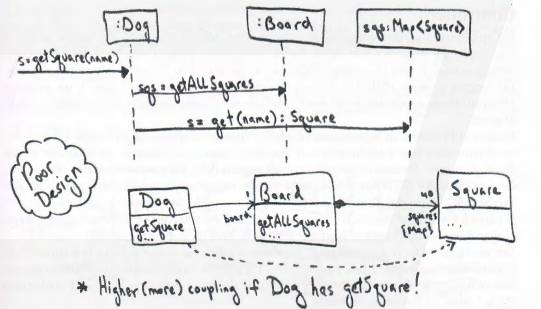 :Dog
:Board
sqs: Map<Square>
s=getSquare(name)
sqs = getAllSquares
s= get(name): Square
Poor
Design
Dog
getSquare
...
board
1
Board
getAllSquares
...
40
squares
{Map}
Square
...
* Higher (more) coupling if Dog has getSquare!